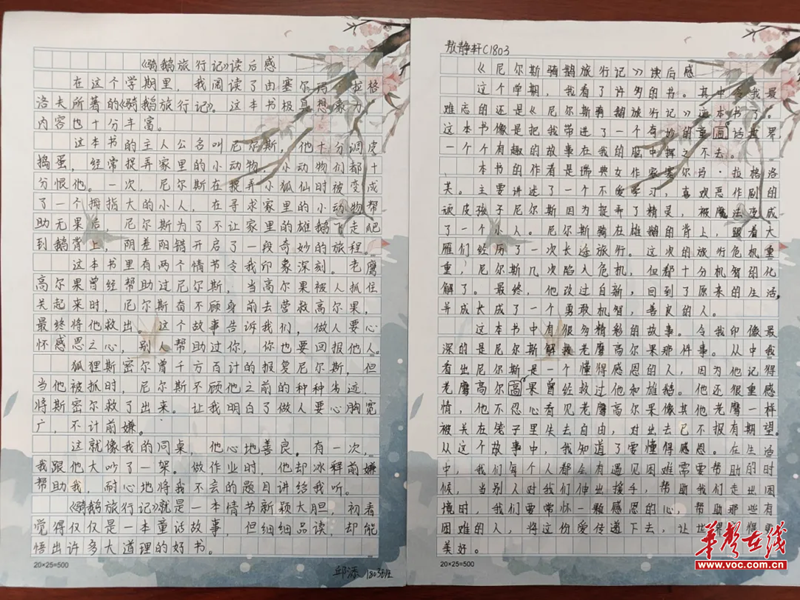 《骑鹅旅行记》读后感
在这个学期里，我阅读了由塞尔玛·拉格
洛夫所著的《骑鹅旅行记》。这本书极具想象力，
内容也十分丰富。
这本书的主人公名叫尼尔斯，他十分调皮
捣蛋，经常捉弄家里的小动物，小动物们都十
分恨他。一次，尼尔斯在捉弄小狐仙时被变成
了一个拇指大的小人，在寻求家里的小动物帮
助无果后，尼尔斯为了不让家里的雄鹅飞走爬
到鹅背上，阴差阳错开启了一段奇妙的旅程。
这本书里有两个情节令我印象深刻。老鹰
高尔果曾经帮助过尼尔斯，当高尔果被人抓住
关起来时，尼尔斯奋不顾身前去营救高尔果，
最终将他救出。这个故事告诉我们，做人要心
怀感恩之心，别人帮助过你，你也要回报他人。
狐狸斯密尔曾千方百计的报复尼尔斯，但
当他被抓时，尼尔斯不顾他之前的种种劣迹，
将斯密尔救了出来。让我明白了做人要心胸宽
广，不计前嫌。
这就像我的同桌，他心地善良。有一次，
我跟他大吵了一架。做作业时，他却冰释前嫌
帮助我，耐心地将我不会的题目讲给我听。
《骑鹅旅行记》就是一本情节新颖大胆，初看
觉得仅仅是一本童话故事，但细细品读，却能
悟出许多大道理的好书。
20×25=500
1803班
敖静轩C1803
《尼尔斯骑鹅旅行记》读后感
这个学期，我看了许多的书。其中令我最
难忘的还是《尼尔斯骑鹅旅行记》这本书。
这本书像是把我带进了一个奇妙的童话世界，
一个个有趣的故事在我的脑中挥之不去。
本书的作者是瑞典女作家塞尔玛·拉格洛
芙。主要讲述了一个不爱学习，喜欢恶作剧的
顽皮孩子尼尔斯因为捉弄了精灵，被魔法变成
了一个小人。尼尔斯在雄鹅的背上，跟着大
雁们经历了一次长途旅行。这次的旅行危机重
重，尼尔斯几次陷入危机，但都十分机智的化
解了。最终，他改过自新，回到了原来的生活，
并成长成了一个勇敢机智，善良的人。
这本书中有很多精彩的故事。令我印像最
深的是尼尔斯解救老鹰高尔果那件事。从中我
看出尼尔斯是一个懂得感恩的人，因为他记得
老鹰高尔果曾经救过他和雄鹅。他还很重感
情，他不忍心看见老鹰高尔果像其他老鹰一样
被关在笼子里失去自由，对出去已不报有期望。
从这个故事中，我知道了要懂得感恩。在生活
中，我们每个人都会有遇见困难需要帮助的时
候，当别人对我们伸出援手，帮助我们走出困
境时，我们要常怀一颗感恩的心，帮助那些有
困难的人，将这份爱传递下去，让世界变得更
美好。
20×25=500
华声在线
www.voc.com.cn